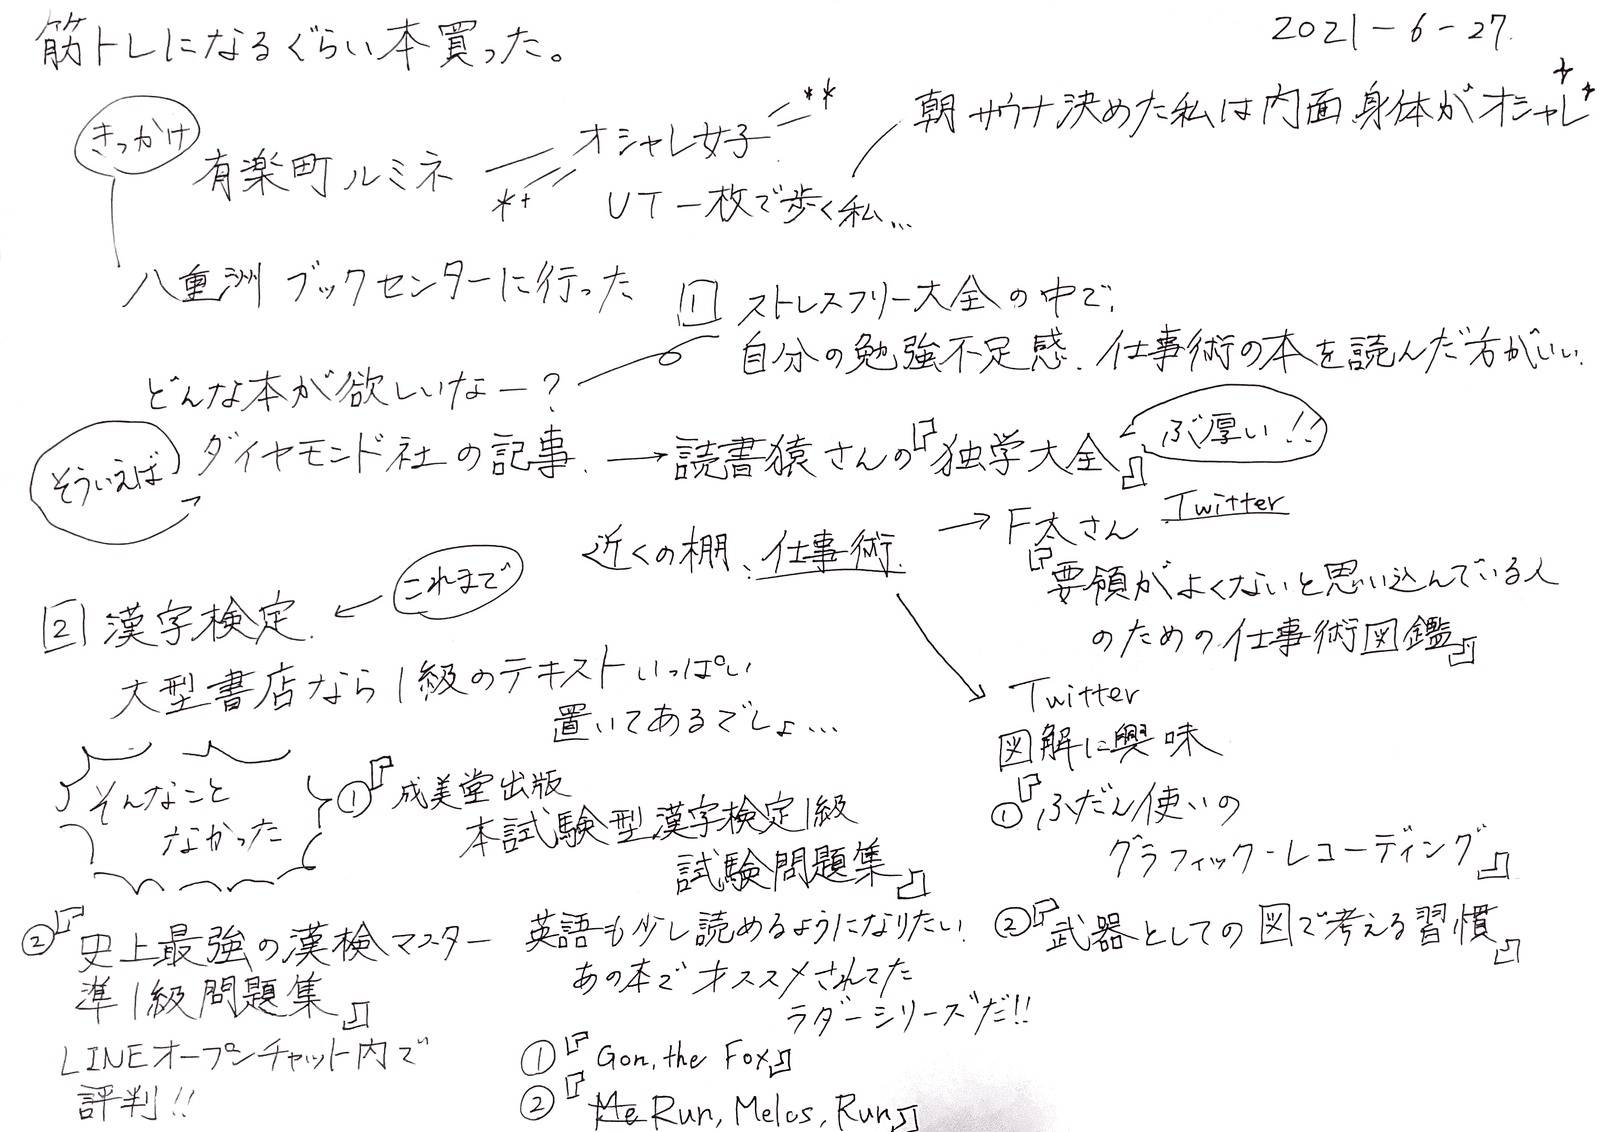 筋トレになるぐらい本買った。
2021-6-27.
きっかけ
有楽町ルミネ
オシャレ女子
UT一枚で歩く私...
朝サウナ決めた私は内面身体がオシャレ
八重洲ブックセンターに行った
どんな本が欲しいなー?
1 ストレスフリー大全の中で、
自分の勉強不足感.仕事術の本を読んだ方がいい.
そういえば
ダイヤモンド社の記事.→読書猿さんの『独学大全』
ぶ厚い!!
近くの棚、仕事術.
→F太さん Twitter
『要領がよくないと思い込んでいる人
のための仕事術図鑑』
Twitter
図解に興味
①『ふだん使いの
グラフィック-レコーディング』
②『武器としての図で考える習慣』
これまで
2 漢字検定.
大型書店なら1級のテキストいっぱい
置いてあるでしょ...
そんなこと
なかった
①『成美堂出版
本試験型漢字検定1級
試験問題集』
②『史上最強の漢検マスター
準1級問題集』
LINEオープンチャット内で
評判!!
英語も少し読めるようになりたい.
あの本でオススメされてた
ラダーシリーズだ!!
①『Gon, the Fox』
②『Me Run, Melos, Run』